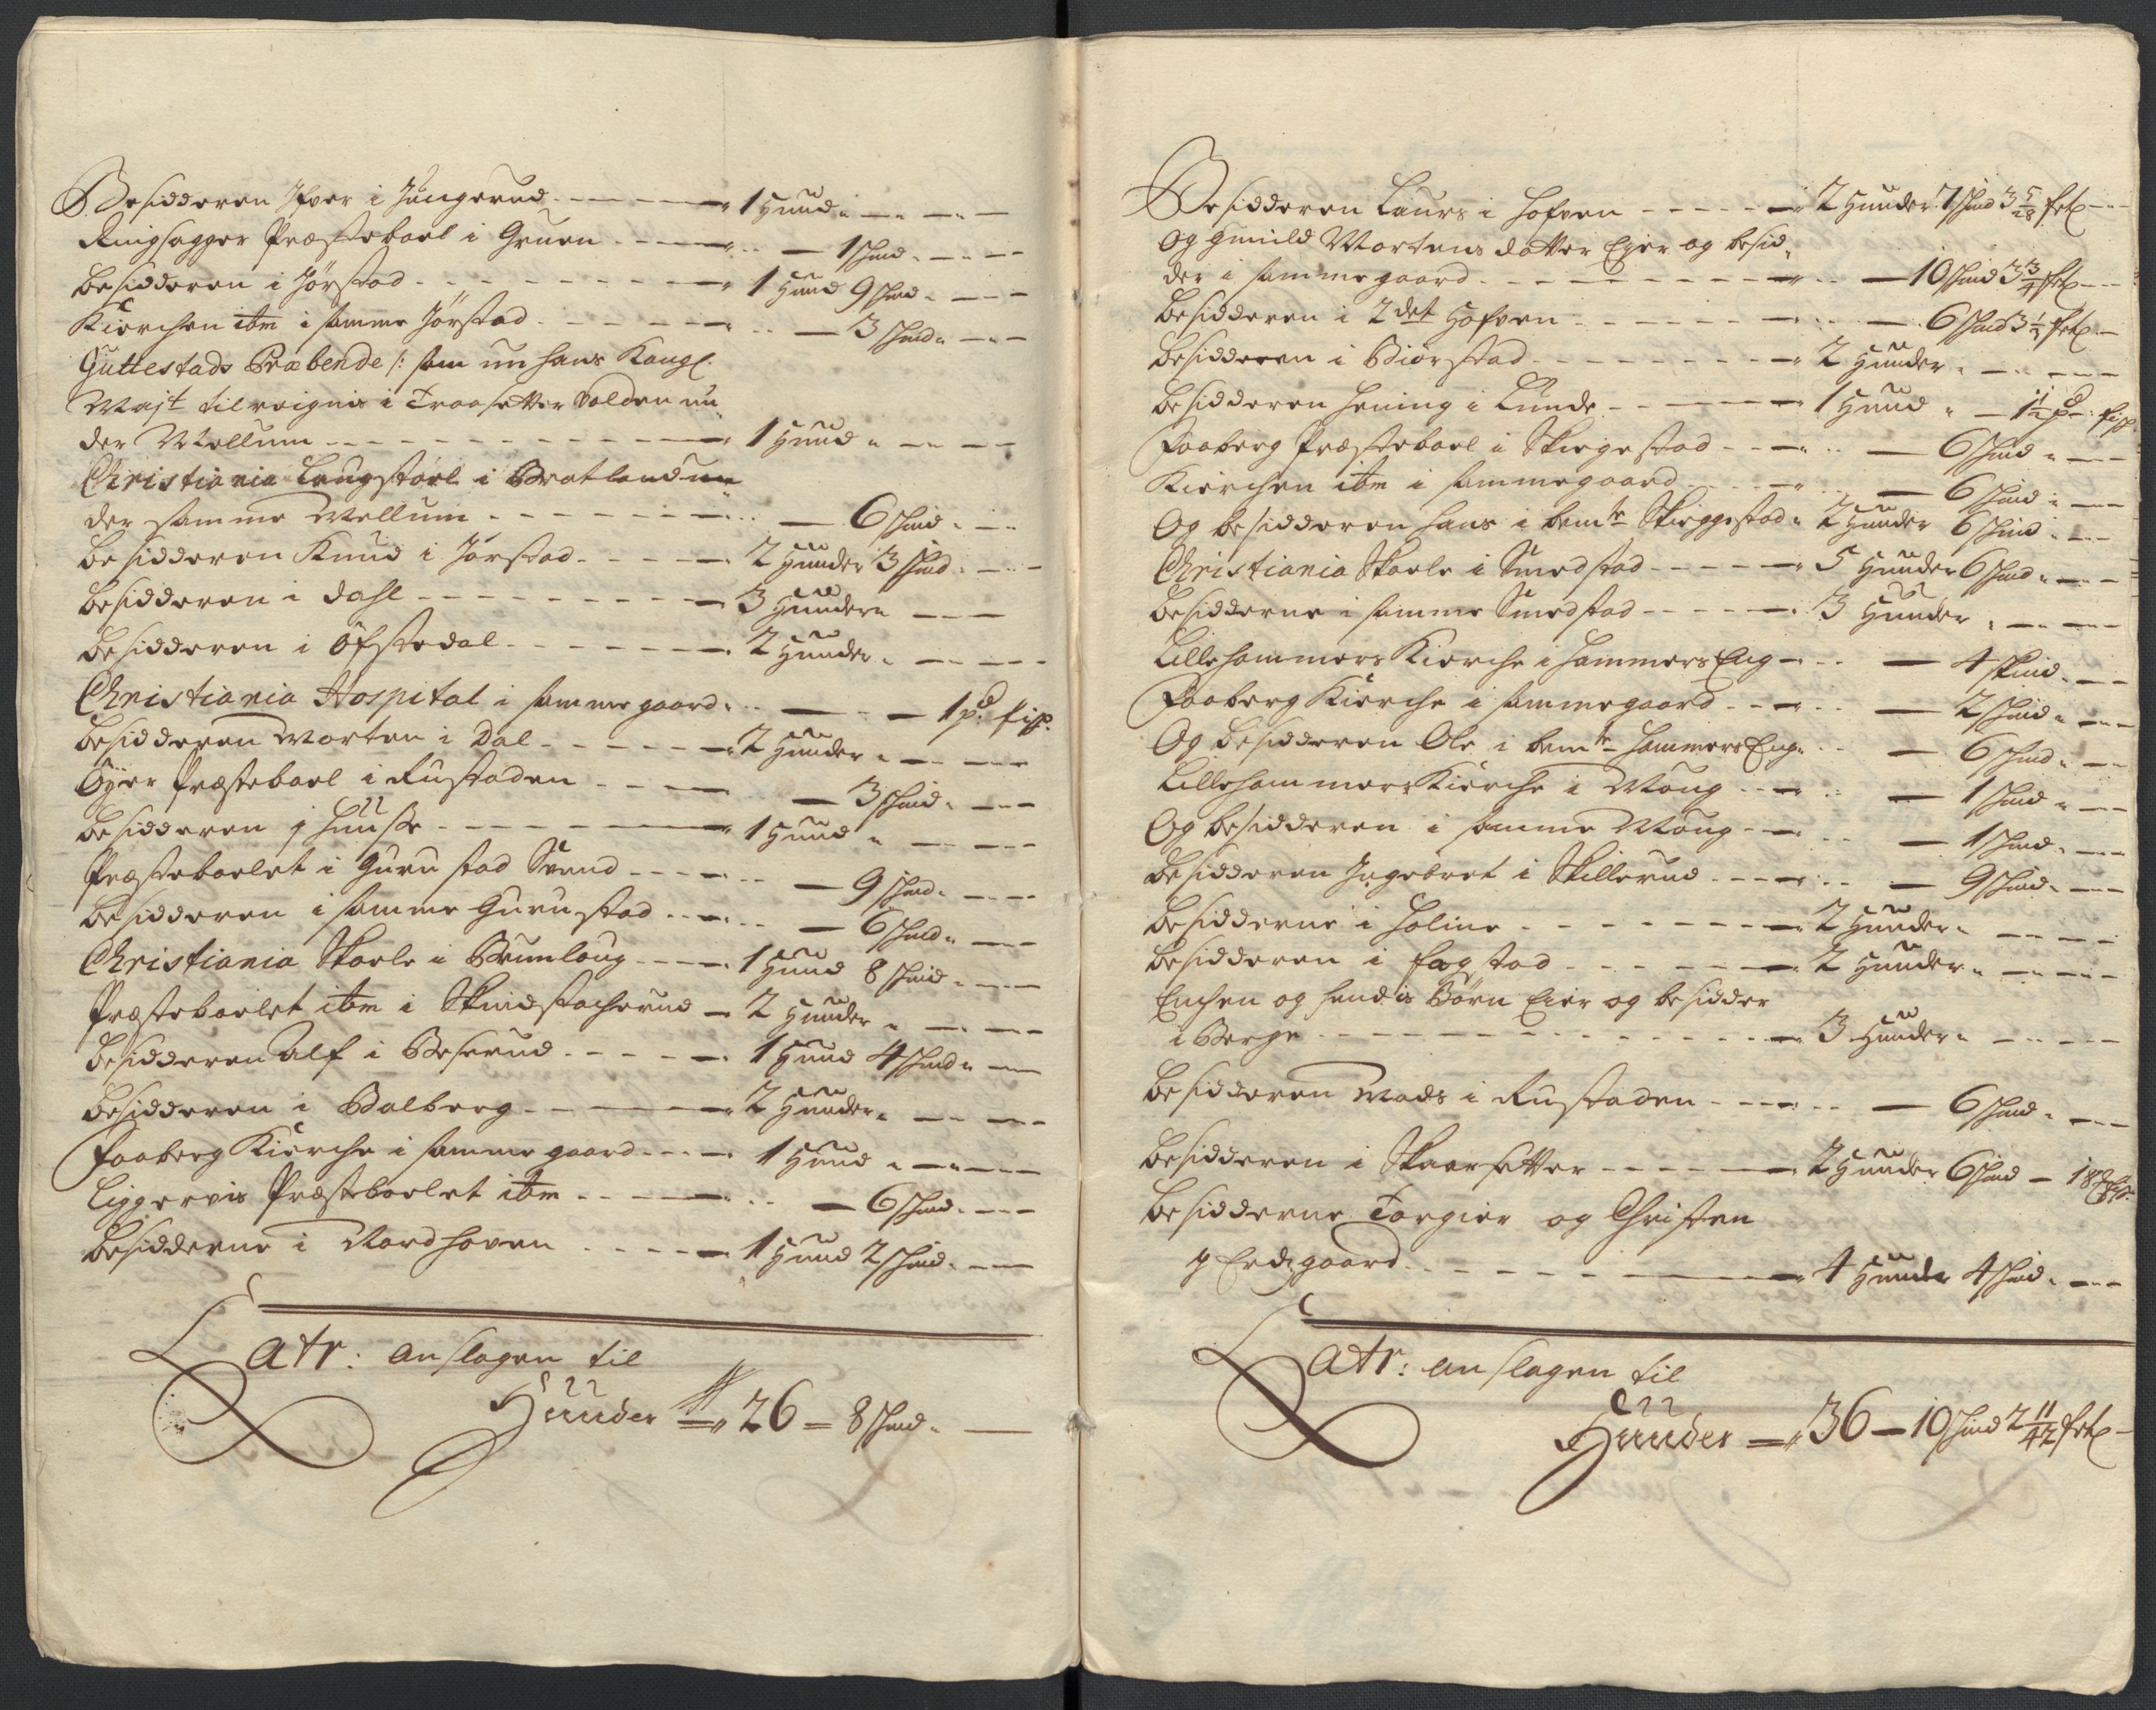 Besidderen Ifver i Jungerud - - - - 1 Hund
Ringsagger Præsteboel i Gruen - - - 1 skind
Besidderen i Jørstad - - - - 1 Hund 9 skind
Kierchen itm i samme Jørstad - - - 3 skind
Guttestads Præbende /: som nu hans Kongl.
Majt tilreignis i Traasetter Volden un
der Mellum - - - - 1 Hund
Christiania Laugstoel i Bratland un
der samme Mellum - - - 6 skind
Besidderen Knud i Jørstad - - - 2 Hunder 3 skind
Besidderen i Dahl - - - - 3 Hunder
Besidderen i Øfstedal - - - - 2 Hunder
Christiania Hospital i samme gaard - - 1 pd fisk
Besidderen Morten i Dal - - - 2 Hunder
Øyer Præsteboel i Rustaden - - - 3 skind
Besidderen i Huuse - - - - 1 Hund
Præsteboelet i Gurustad Svend - - - 9 skind
Besidderen i samme Gurustad - - - 6 skind
Christiania Skoele i Brunlaug - - - 1 Hund 8 skind
Præsteboelet itm i Skindstacherud - 2 Hunder
Besidderen Alf i Beserud - - - 1 Hund 4 skind
Besidderen i Balberg - - - 2 Hunder
Faaberg Kierche i samme gaard - - - 1 Hund
Liggervis Præsteboelet itm - - - 6 skind
Besidderne i Nordhoven - - - 1 Hund 2 skind
Latr: anslagen til
Huuder 26 = 8 skind
Besidderen Laurs i Hofven - - - 2 Hunder 7 skind 3 5/28 sk
Og Gunild Mortens datter Ejer og besid
der i samme gaard - - - - 10 skind 3 3/4 sk
Besidderen i 2det Hofven - - - 6 skind 3 1/2 sk
Besidderen i Biørstad - - - 2 Hunder
Besidderen Hening i Lunde - - - 1 Hund - 1 1/2 pd: fisk
Faaberg Præsteboel i Skirgestad - - - 6 skind
Kierchen itm i samme gaard - - - 6 skind
Og besidderen Hans i bemte Skriggestad 2 Hunder 6 skind
Christiania Skoele i Smedstad - - - 5 Hunder 6 skind
Besidderne i samme Smedstad - - - 3 Hunder
Lillehammers Kierche i Hammers Eng - - 4 skind
Faaberg Kierche i samme gaard - - - 2 skind
Og besidderen Ole i bemte Hammers Eng - - 6 skind
Lillehammers Kierche i Moug - - - 1 skind
Og besidderen i samme Moug - - - 1 skind
Besidderen Ingebret i Skillerud - - - 9 skind
Besidderne i Holme - - - 2 Hunder
Besidderen i Fagstad - - - 2 Hunder
Enchen og hendis Børn Eier og besidder
i Berge - - - - 3 Hunder
Besidderen Mads i Rustaden - - - 6 skind
Besidderen i Skaarsetter - - - 2 Hunder 6 skind - 18
Besidderne Torgier og Christen
på gaard - - - - 4 Hunder 4 skind
Latr: anslagen til
Huuder 36 - 10 skind 2 11/42 sk